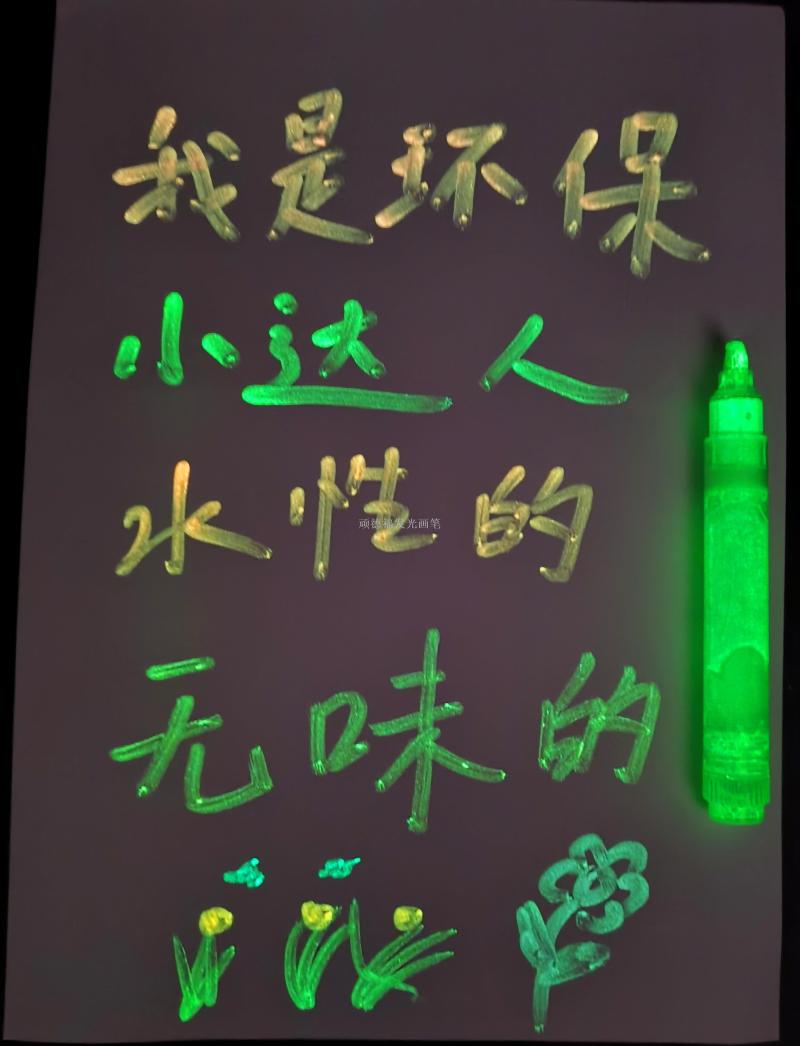 我是环保
小达人
水性的
顽德福发光画笔
无味的